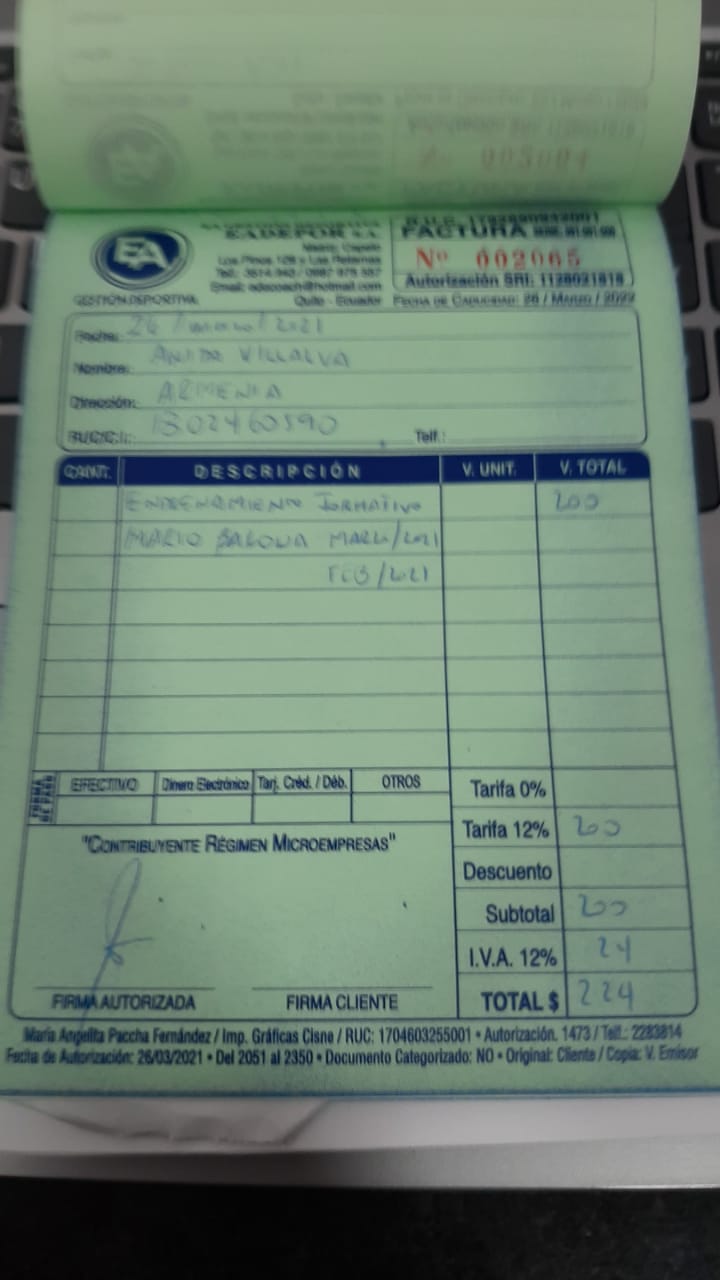 Nº 003004
EA
GESTIÓN DEPORTIVA
EADEPOR S.A.
Quito - Ecuador
FACTURA
Nº 002065
Autorización SRI: 1128021818
FECHA DE CADUCIDAD: 26 / MARZO / 2022
Fecha: 26 / marzo / 2021
Nombre: ANITA VILLALVA
Dirección: ARMENIA
RUC/C.I.: 1302460590 Telf.:
CANT. DESCRIPCIÓN V. UNIT. V. TOTAL
ENTRENAMIENTO FORMATIVO 200
MARIO MARZO/2021
FEB/2021
FORMA DE PAGO EFECTIVO Dinero Electrónico Tarj. Créd. / Déb. OTROS
Tarifa 0%
Tarifa 12% 200
"CONTRIBUYENTE RÉGIMEN MICROEMPRESAS"
Descuento
Subtotal 200
I.V.A. 12% 24
TOTAL $ 224
FIRMA AUTORIZADA FIRMA CLIENTE
María Angelita Paccha Fernández / Imp. Gráficas Cisne / RUC: 1704603255001 • Autorización. 1473 / Telf.: 2283814
Fecha de Autorización: 26/03/2021 • Del 2051 al 2350 • Documento Categorizado: NO • Original: Cliente / Copia: V. Emisor